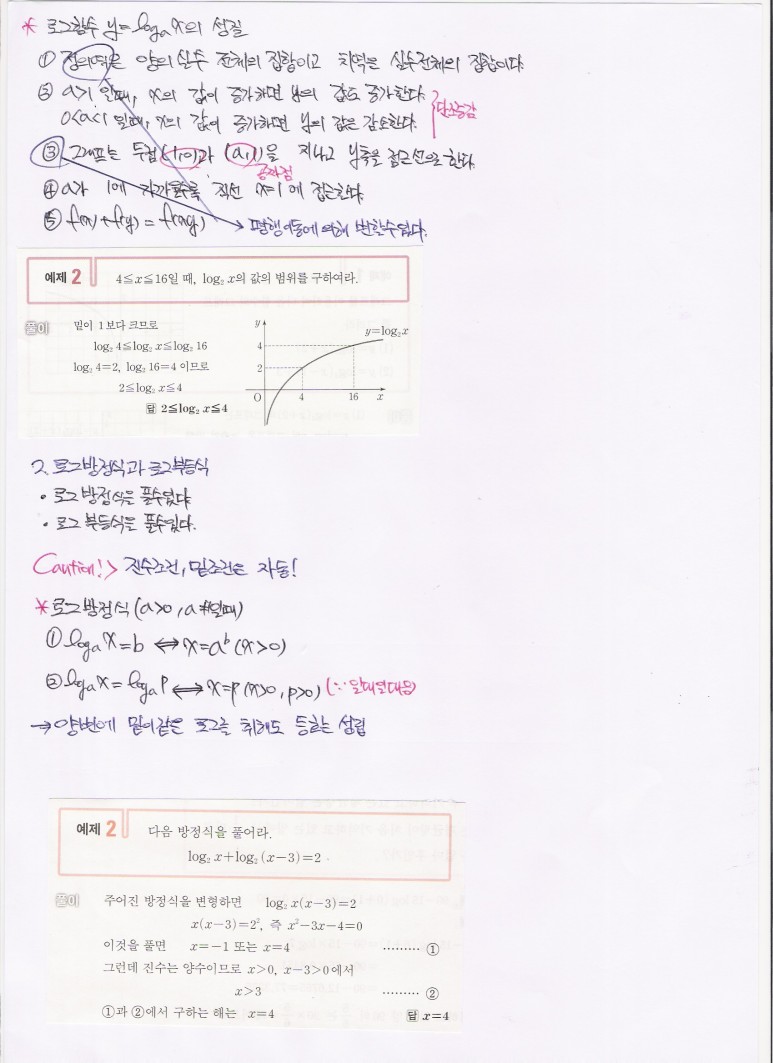 * 로그함수 y=logₐx의 성질
① 정의역은 양의 실수 전체의 집합이고 치역은 실수전체의 집합이다.
② a>1 일때, x의 값이 증가하면 y의 값도 증가한다.
0<a<1 일때, x의 값이 증가하면 y의 값은 감소한다.
단조증감
③ 그래프는 두점 (1,0)과 (a,1)을 지나고 y축을 점근선으로 한다.
공짜점
④ a가 1에 가까울수록 직선 x=1에 접근한다.
⑤ f(x)+f(y)=f(xy)
→ 평행이동에 의해 변할수있다.
예제 2 4≦x≦16일 때, log₂ x의 값의 범위를 구하여라.
풀이 밑이 1보다 크므로
log₂ 4≦log₂ x≦log₂ 16
log₂ 4=2, log₂ 16=4 이므로
2≦log₂ x≦4
답 2≦log₂ x≦4
y
y=log₂x
4
2
O 4 16 x
2. 로그방정식과 로그부등식
• 로그방정식을 풀수있다
• 로그 부등식을 풀수있다.
Caution!> 진수조건, 밑조건은 자동!
* 로그방정식 (a>0, a≠1일때)
① logₐx=b ⟺ x=aᵇ (x>0)
② logₐx=logₐp ⟺ x=p (x>0, p>0) (∵ 일대일대응)
→ 양변에 밑이같은 로그를 취해도 등호는 성립
예제 2 다음 방정식을 풀어라.
log₂ x+log₂ (x−3)=2
풀이 주어진 방정식을 변형하면 log₂ x(x−3)=2
x(x−3)=2², 즉 x²−3x−4=0
이것을 풀면 x=−1 또는 x=4 ········· ①
그런데 진수는 양수이므로 x>0, x−3>0에서
x>3 ········· ②
①과 ②에서 구하는 해는 x=4 답 x=4